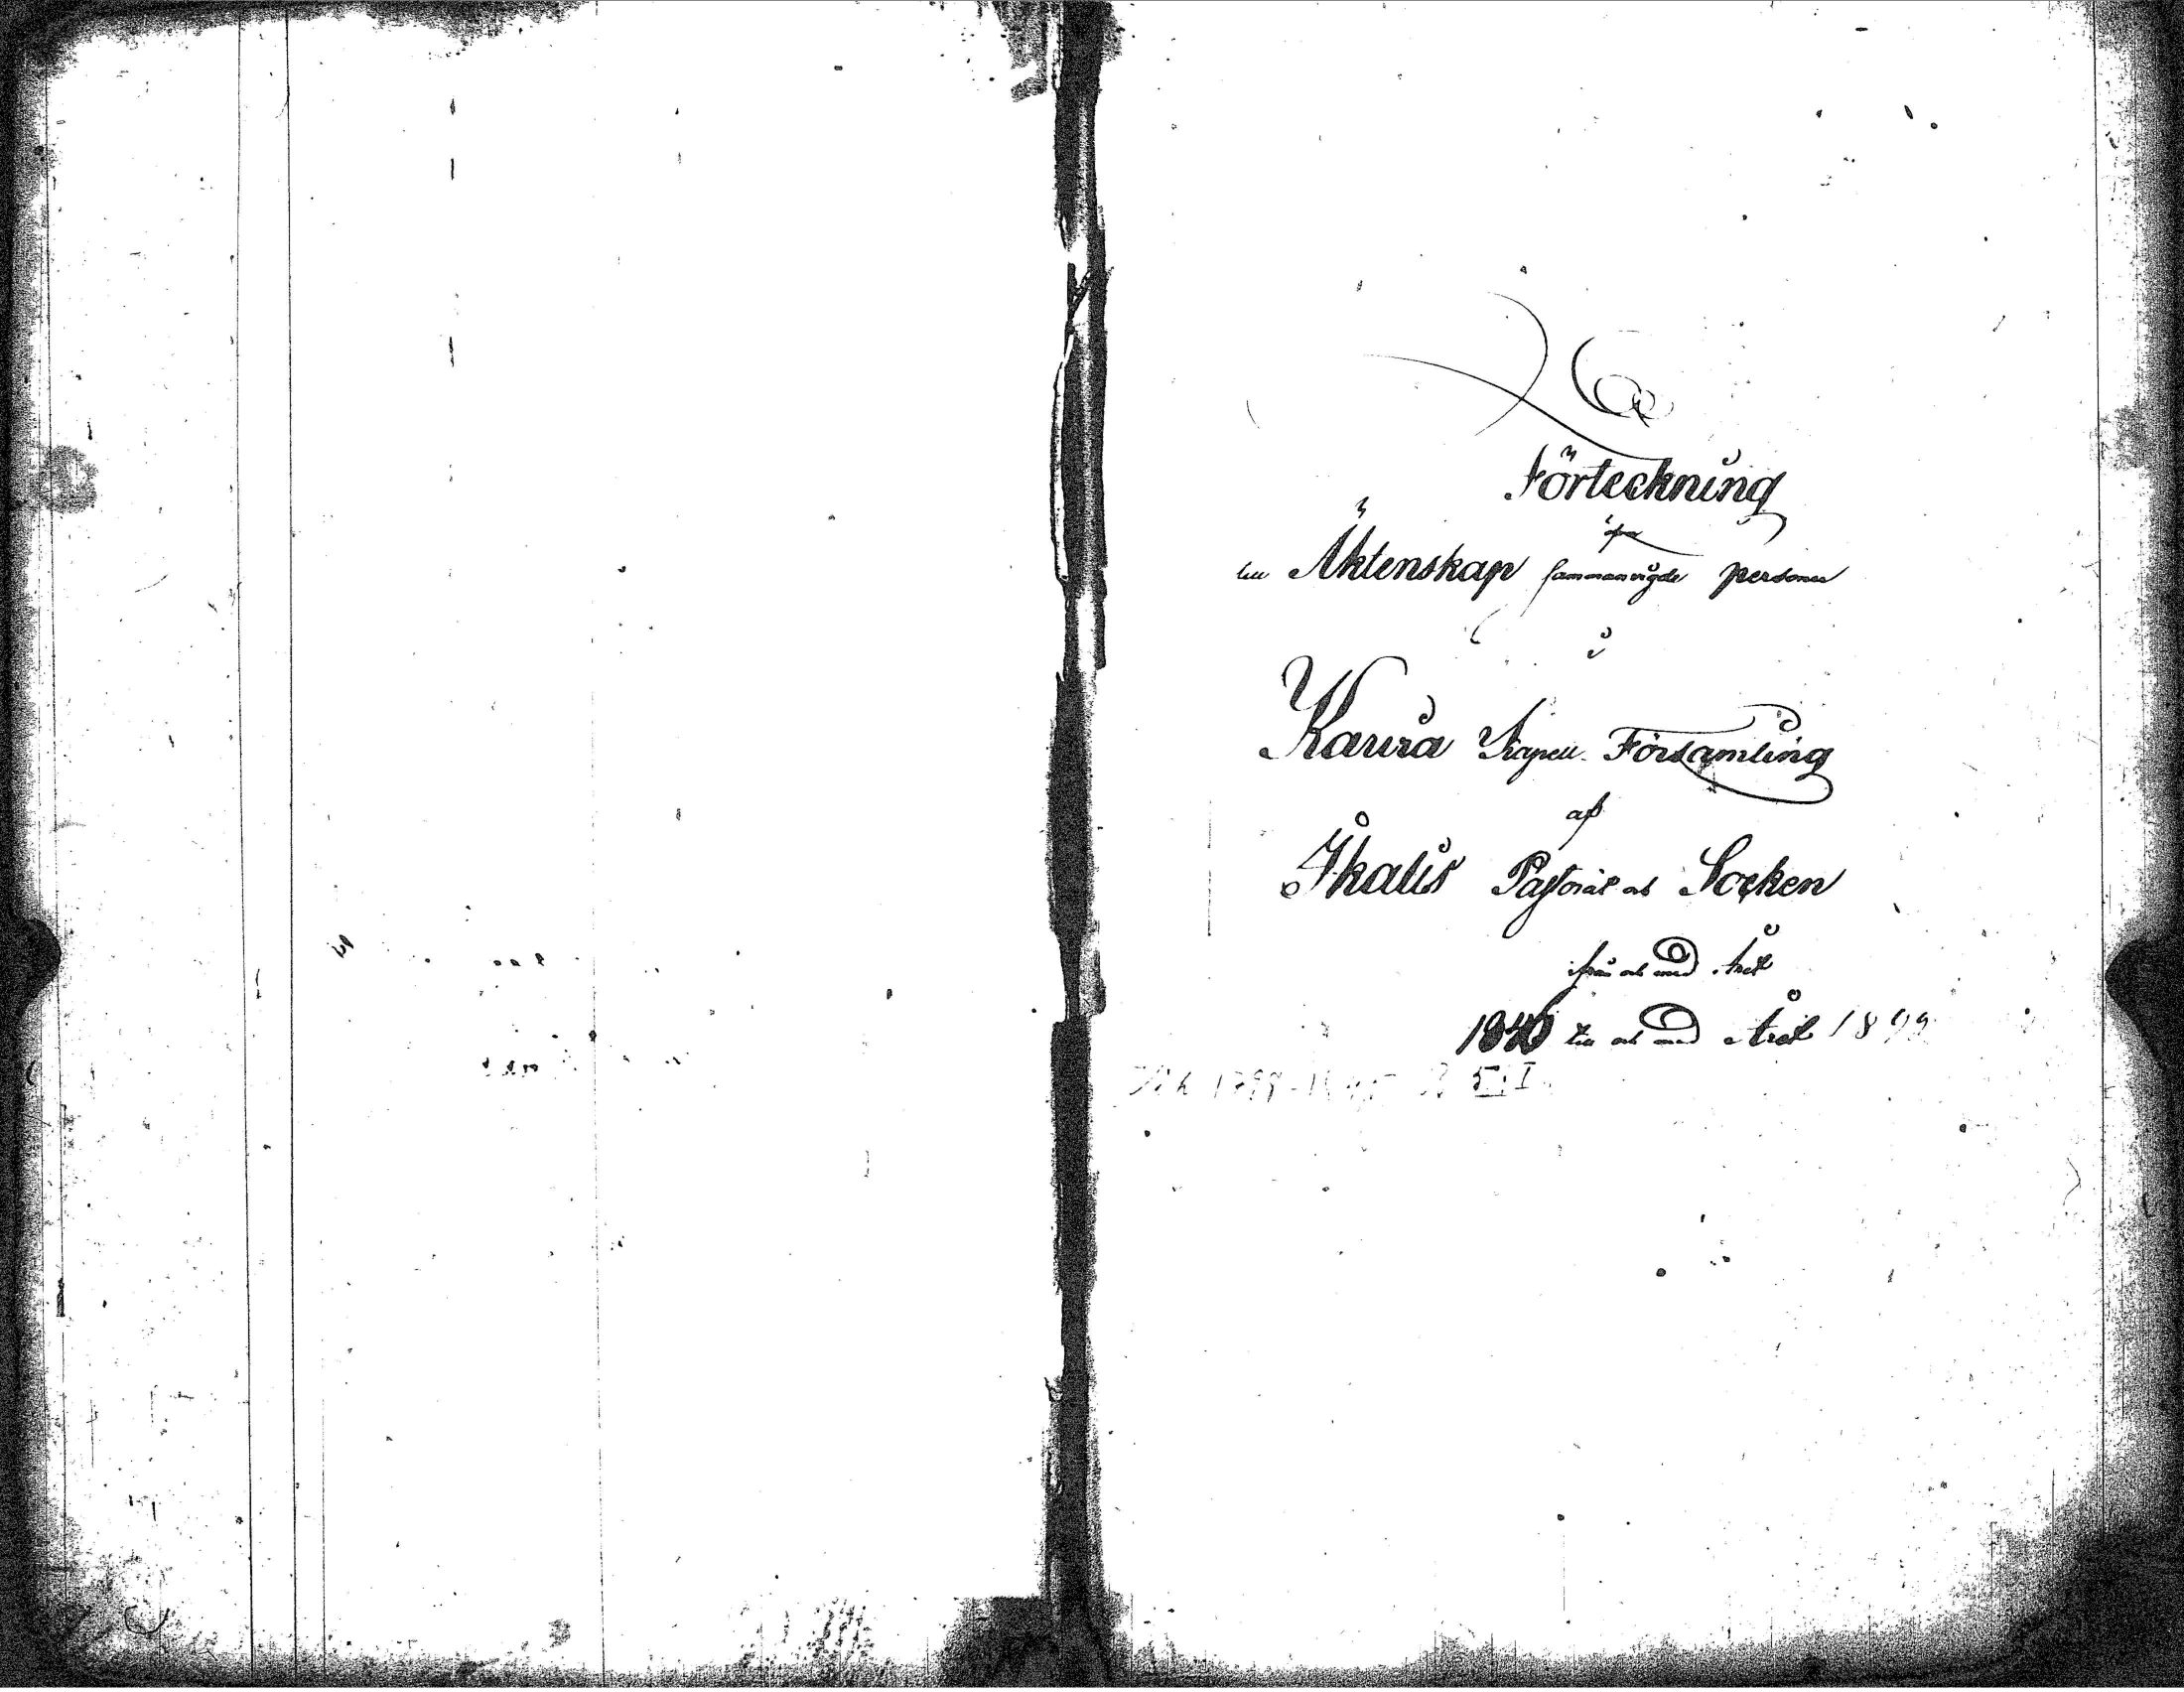 Förteckning
öfver
till Äktenskap sammanvigde personer
i
Kaura Kapell Församling
af
Ikalis Pastorat och Socken
ifrån och med Året
1846 till och med Året 1899